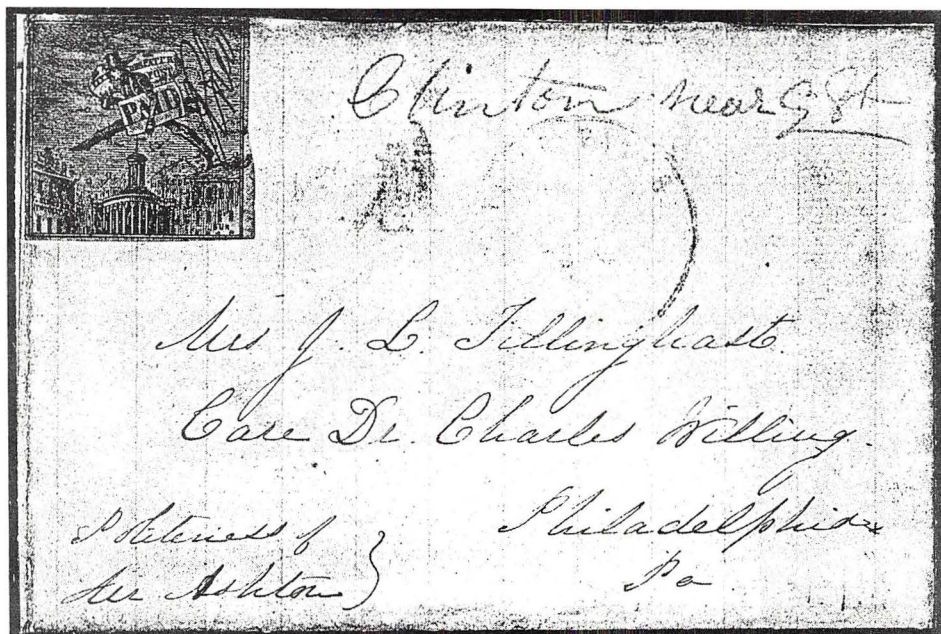 PAID
Clinton near 9 St
Mrs J. L. Tillinghast.
Care Dr. Charles Willing.
Philadelphia
Pa
Politeness of
Mr Ashton